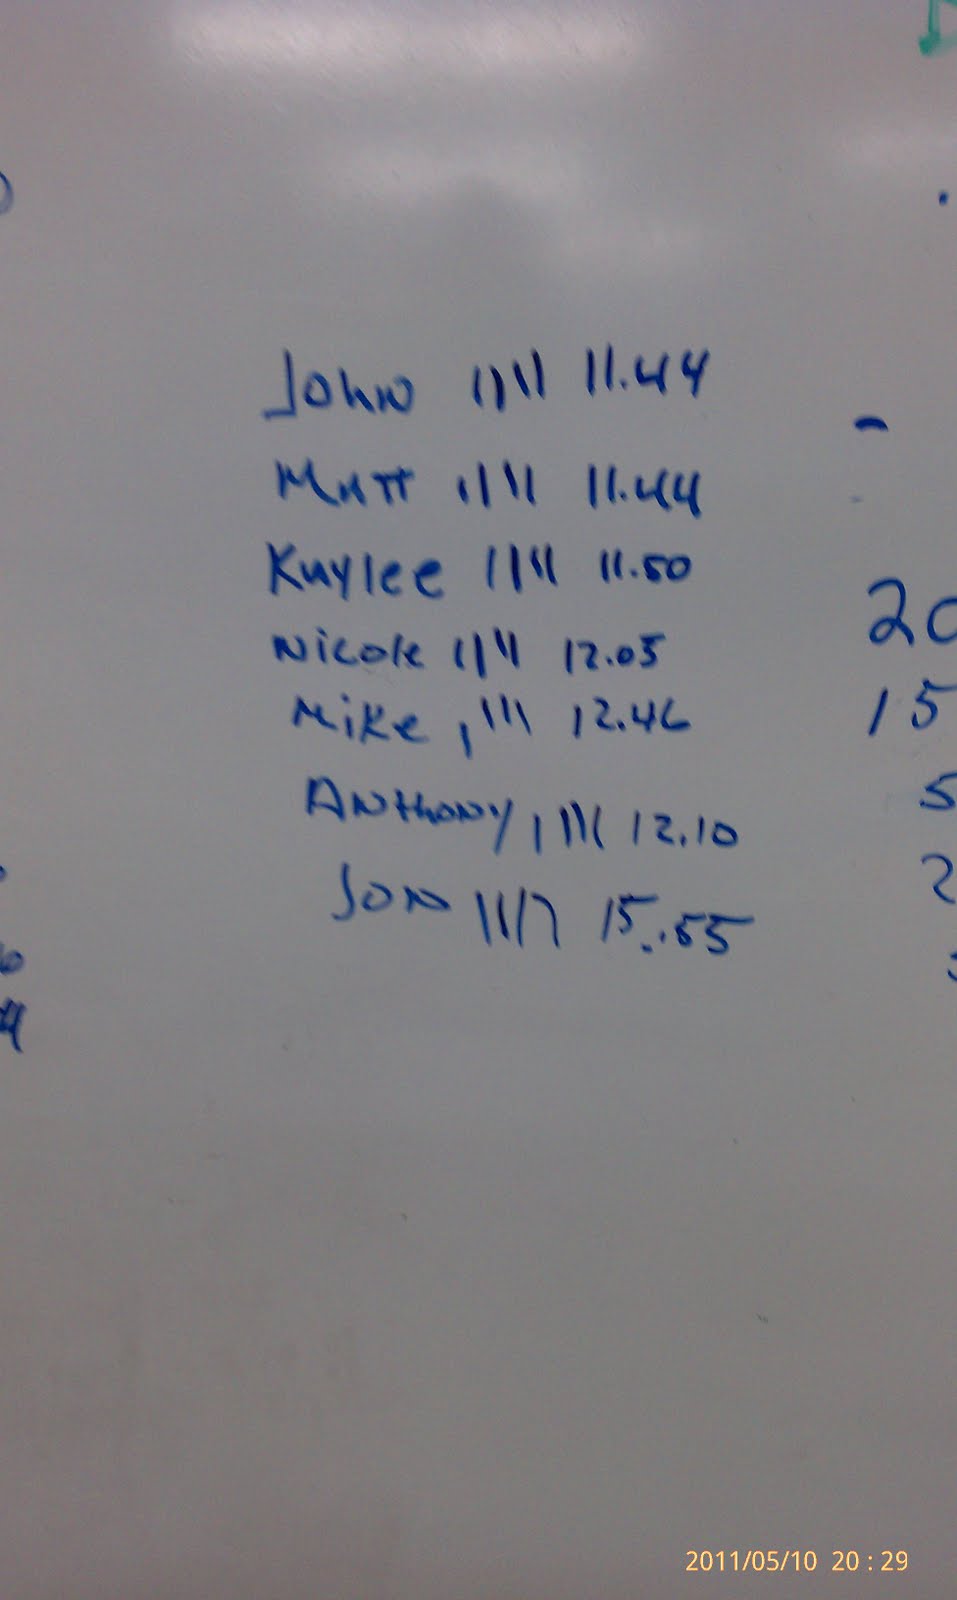 John |||| 11.44
Matt |||| 11.44
Kaylee |||| 11.50
Nicole |||| 12.05
Mike |||| 12.46
Anthony |||| 12.10
Jon |||| 15.55
20
15
5
2
2011/05/10 20:29